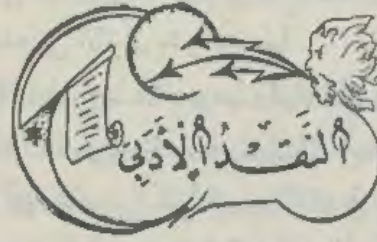 النَّقْدُ الأَدَبِيّ